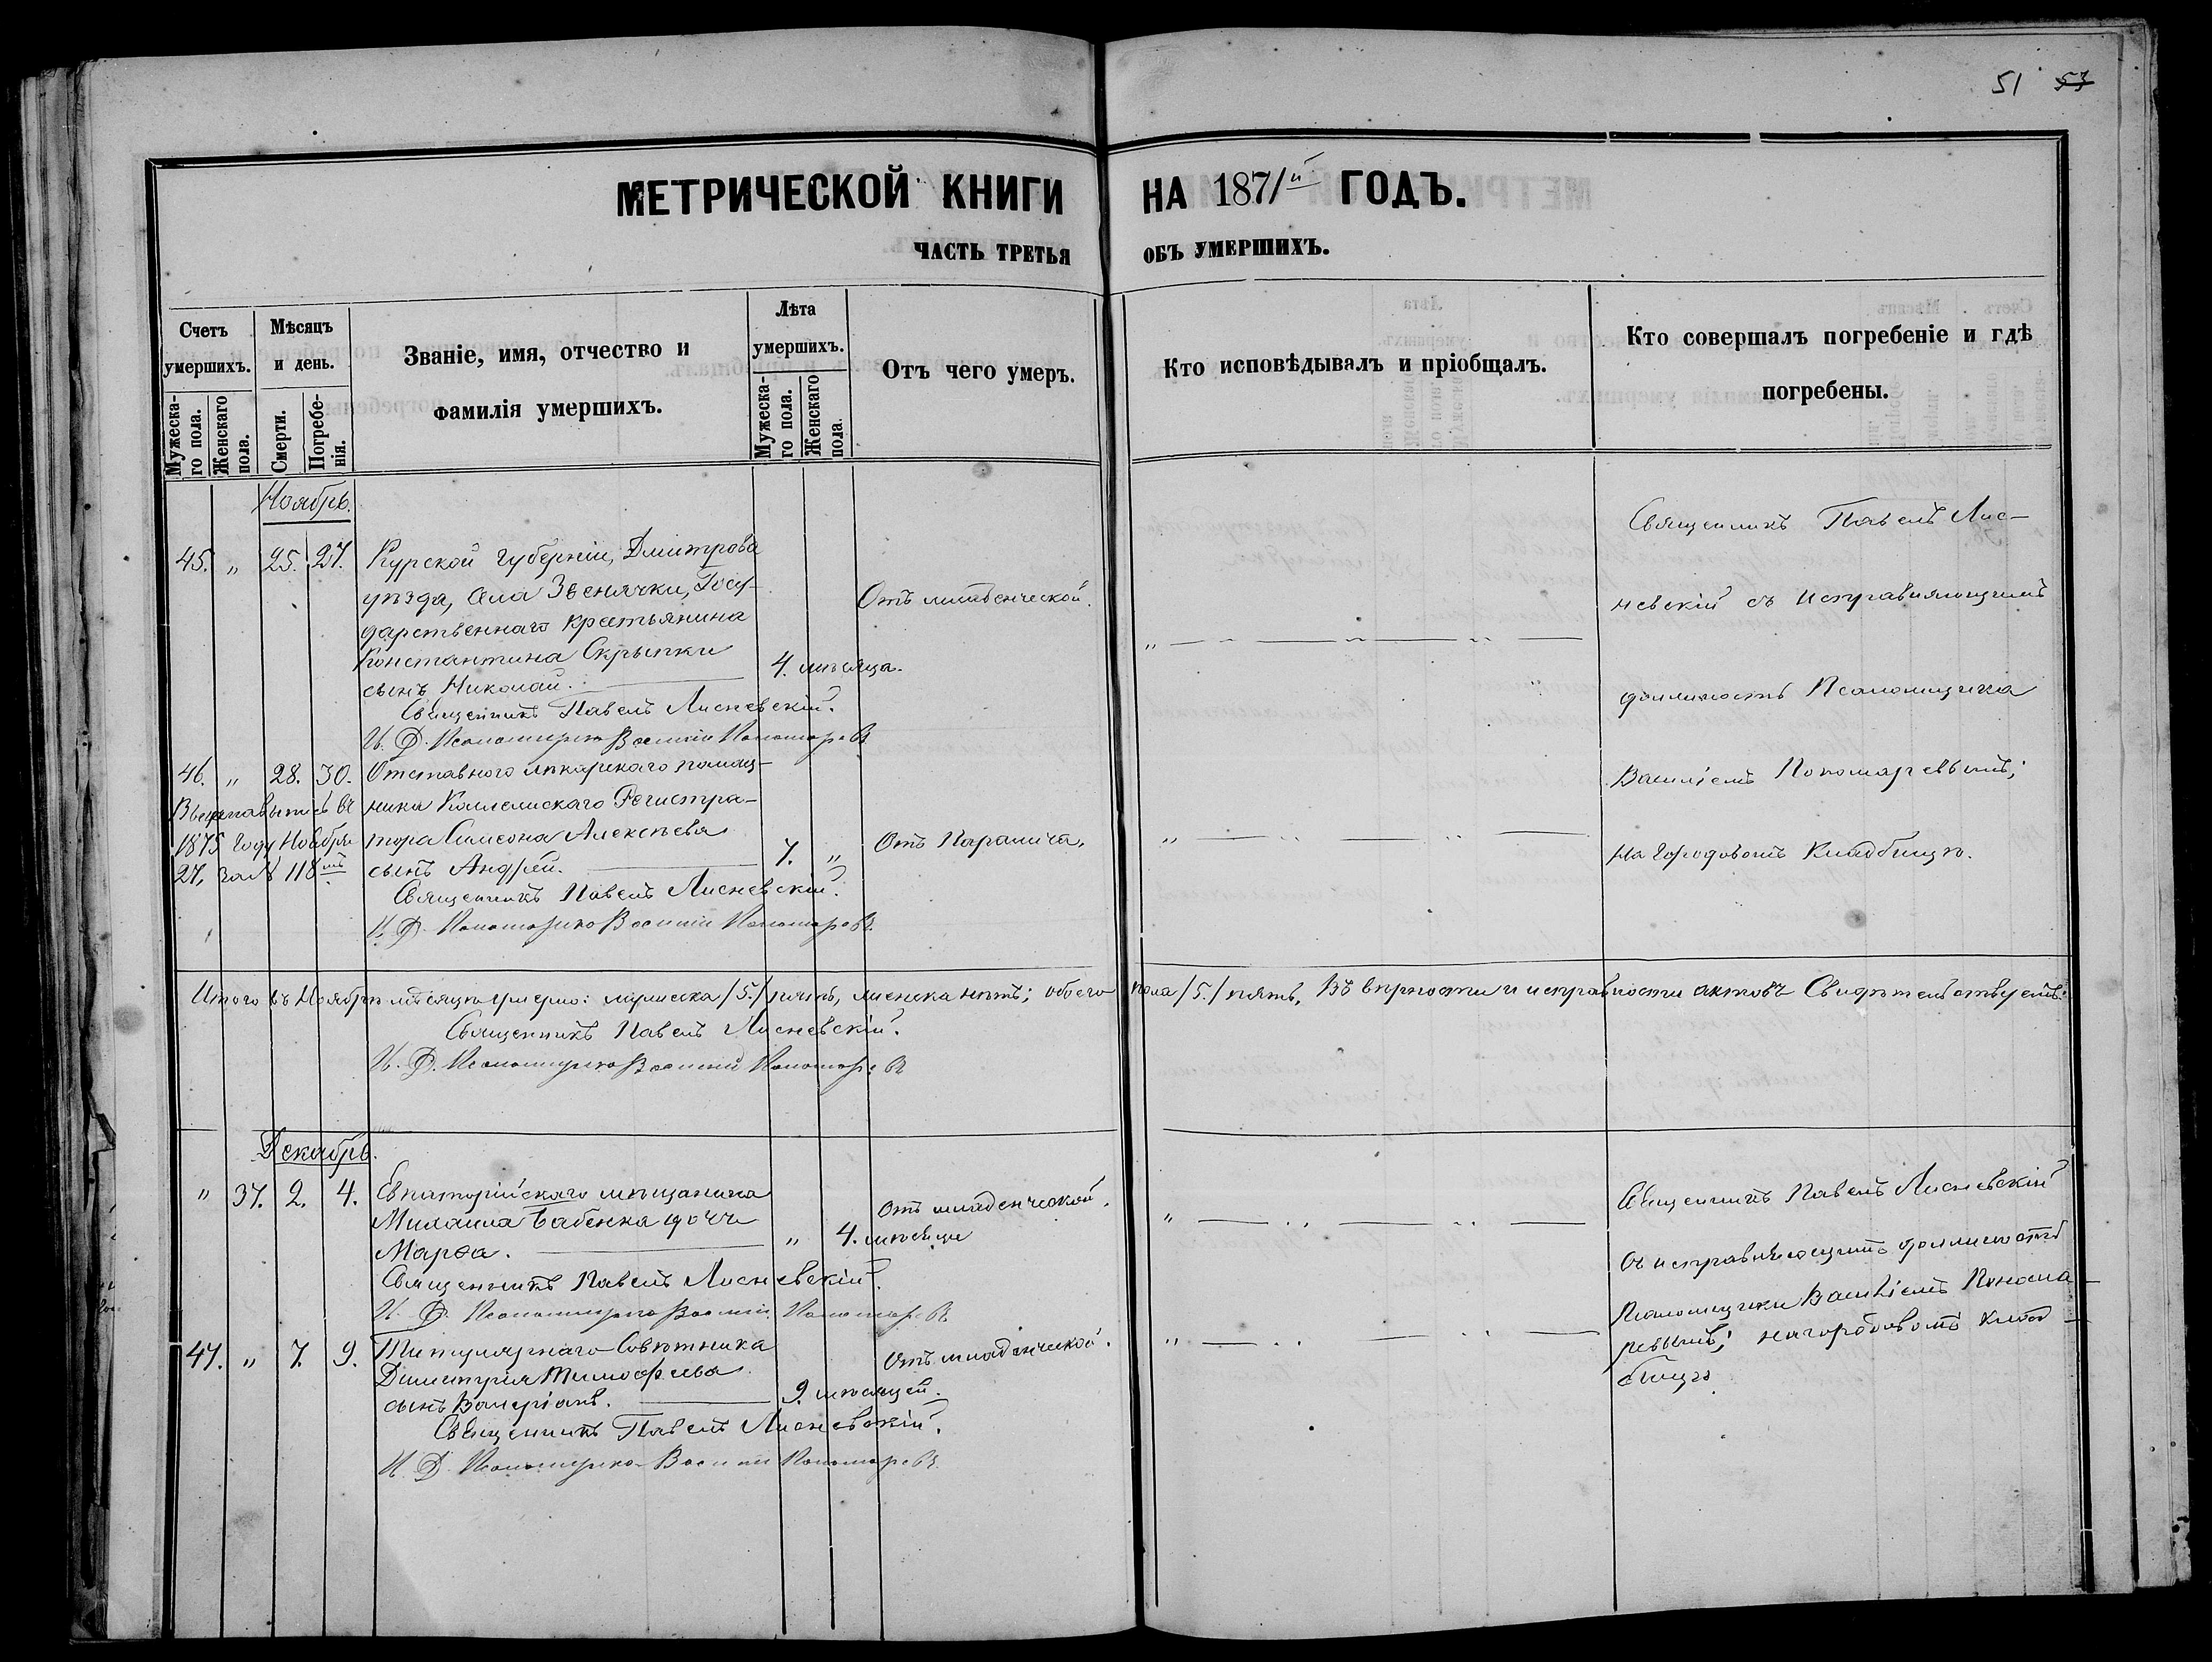 51 53
МЕТРИЧЕСКОЙ КНИГИ НА 1871й ГОДЪ.
ЧАСТЬ ТРЕТЬЯ ОБЪ УМЕРШИХЪ.
Счетъ умершихъ.
Мужескаго пола.
Женскаго пола.
Мѣсяцъ и день.
Смерти.
Погребенія.
Званіе, имя, отчество и фамилія умершихъ.
Лѣта умершихъ.
Мужескаго пола.
Женскаго пола.
Отъ чего умеръ.
Кто исповѣдывалъ и пріобщалъ.
Кто совершалъ погребеніе и гдѣ погребены.
Ноябрь.
45. " 25. 27. Курской губерніи, Дмитрова
уѣзда, села Звенячки, Госу-
дарственнаго крестьянина
Константина Скрыпки
сынъ Николай.
4. мѣсяца.
Отъ младенческой.
Священникъ Павелъ Лисневскій.
И. Д. Псаломщика Василій Пономаревъ
Священникъ Павелъ Лис-
невскій съ исправляющимъ
должность Псаломщика
Василіемъ Пономаревымъ;
на городовомъ кладбищѣ.
46. " 28. 30. Отставного лѣкарскаго помощ-
ника Коллежскаго Регистра-
тора Симеона Алексѣева
сынъ Андрей.
7. "
Отъ Паралича.
1875 году Ноября
27, за № 118мъ
Священникъ Павелъ Лисневскій.
И. Д. Василій Пономаревъ
Итого въ Ноябрѣ мѣсяцѣ умерло: мужеска /5./ пять, женска нѣтъ; обоего пола /5./ пять, Въ вѣрности и исправности актовъ Свидѣтельствуемъ:
Священникъ Павелъ Лисневскій.
И. Д. Псаломщика Василій Пономаревъ
Декабрь.
" 37. 2. 4. Евпаторійскаго мѣщанина
Михаила Бабенка дочь
Марѳа.
" 4. мѣсяца
Отъ младенческой.
Священникъ Павелъ Лисневскій.
И. Д. Псаломщика Василій Пономаревъ
Священникъ Павелъ Лисневскій
съ исправляющимъ должность
Псаломщика Василіемъ Понома-
ревымъ; на городовомъ клад-
бищѣ
47. " 7. 9. Титулярнаго Совѣтника
Димитрія Тимофеева
сынъ Валеріанъ.
9. мѣсяцей.
Отъ младенческой.
Священникъ Павелъ Лисневскій.
И. Д. Псаломщика Василій Пономаревъ